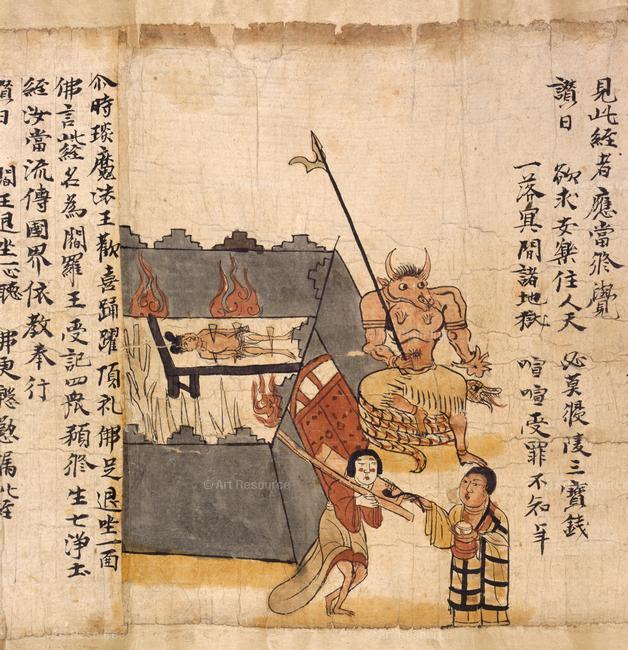 見此經者應當修覺
讚曰 欲求安樂住人天 必莫侵陵三寶錢
一落冥間諸地獄 喧喧受罪不知年
尒時琰魔法王歡喜踊躍頂礼佛足退坐一面
佛言此經名為閻羅王受記四衆預修生七淨土
經汝當流傳國界依教奉行
讚曰 閻王退坐一心聽 佛更慇懃囑此經
© Art Resource